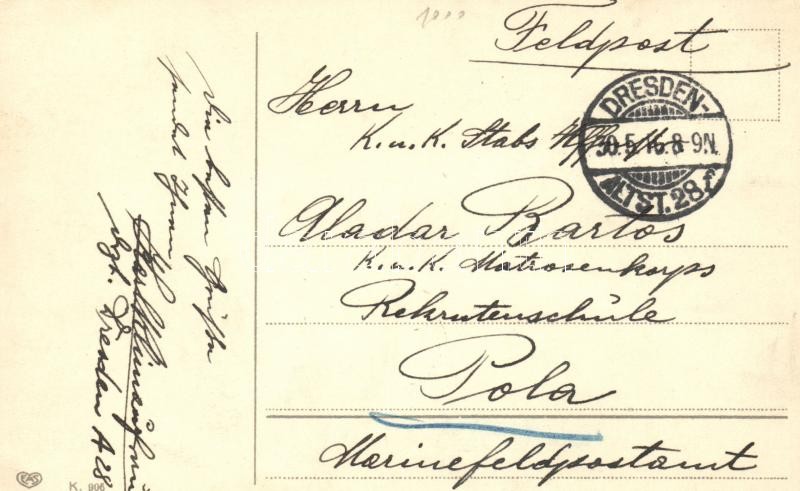 Feldpost
Herrn
K. u. K. Stabs
Aladar Bartos
K. u. K. Matrosenkorps
Rekrutenschule
Pola
Marinefeldpostamt
DRESDEN-
30.5.16.8-9N.
ALTST.28.f
Die besten Grüße
sendet Ihnen
Dresden A 28
EAS
K. 906